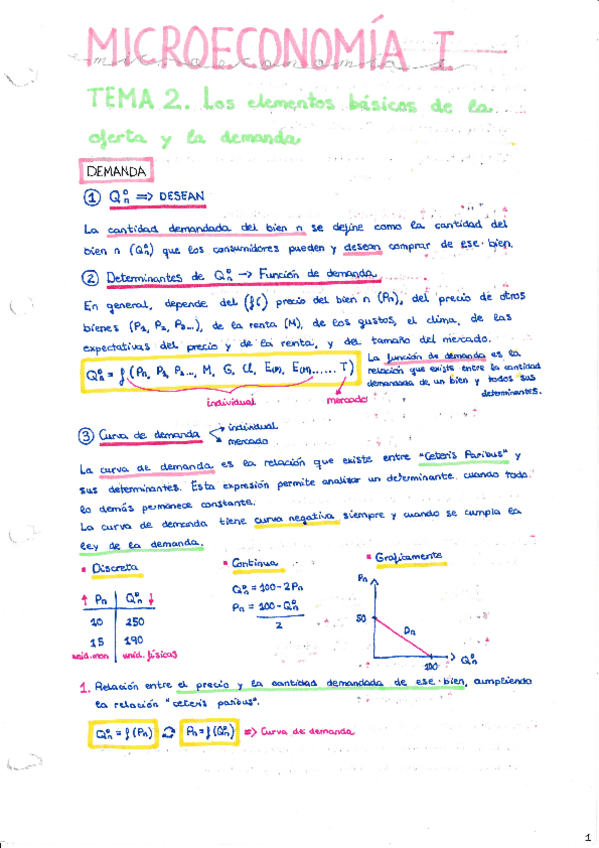 MICROECONOMÍA I
microeconomía I
TEMA 2. Los elementos básicos de la
oferta y la demanda
DEMANDA
① Qᴰn => DESEAN
La cantidad demandada del bien n se define como la cantidad del
bien n (Qᴰn) que los consumidores pueden y desean comprar de ese bien.
② Determinantes de Qᴰn → Función de demanda
En general, depende del (f() precio del bien n (Pn), del precio de otros
bienes (P1, P2, P3...), de la renta (M), de los gustos, el clima, de las
expectativas del precio y de la renta, y del tamaño del mercado.
Qᴰn = f (Pn, P1, P2..., M, G, Cl, E(P), E(M)...... T)
individual
mercado
La función de demanda es la
relación que existe entre la cantidad
demandada de un bien y todos sus
determinantes.
③ Curva de demanda
individual
mercado
La curva de demanda es la relación que existe entre "Ceteris Paribus" y
sus determinantes. Esta expresión permite analizar un determinante cuando todo
lo demás permanece constante.
La curva de demanda tiene curva negativa siempre y cuando se cumpla la
ley de la demanda.
• Discreta
↑ Pn Qᴰn ↓
10 250
15 190
unid.mon unid. físicas
• Continua
Qᴰn = 100-2Pn
Pn = 100-Qᴰn
2
• Gráficamente
Pn
50
Dn
100
Qᴰn
1. Relación entre el precio y la cantidad demandada de ese bien, cumpliendo
la relación "ceteris paribus".
Qᴰn = f (Pn) Pn = f (Qᴰn) => Curva de demanda
1